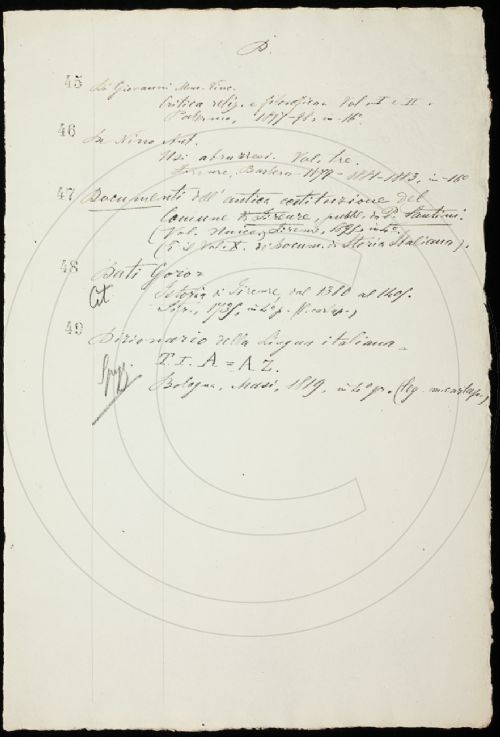 D.
45 Di Giovanni Vinc.
Critica relig. e filosofica. Vol. I e II.
Palermo, in-16°
46 De Nino Ant.
Usi abruzzesi. Vol. tre.
Firenze, Barbera 1879-1881-1883, in-16°
47 Documenti dell'antica costituzione del
Comune di Firenze, pubbl. da P. Santini.
(Vol. Unico, Firenze, 1895, in 4°.
(È il Vol. X. di Docum. di Storia Italiana).
48 Dati Goro
Cat Istoria di Firenze, dal 1380 al 1405.
1735, in 4° p.
49 Dizionario della Lingua italiana
T. I. A = A Z.
Bologna, Masi, 1819, in 4° gr. (leg.